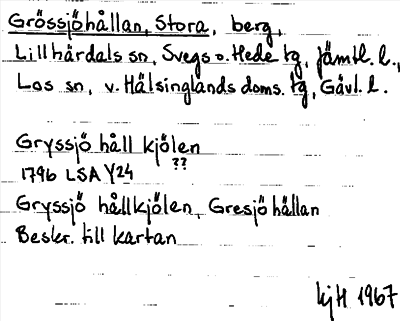 Grössjöhållan, Stora, berg,
Lillhärdals sn, Svegs o. Hede tg, Jämtl. l.,
Los sn, v. Hälsinglands doms. tg, Gävl. l.
Gryssjö håll kjölen
1796 LSA Y24 ??
Gryssjö hållkjölen, Gresjö hållan
Beskr. till kartan
hjH 1967